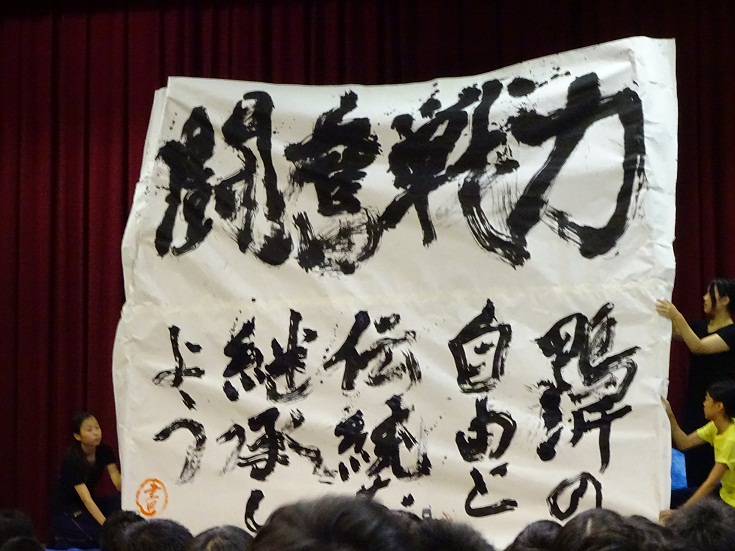 力戦奮闘
鴨沂の
自由と
伝統を
継承し
よう